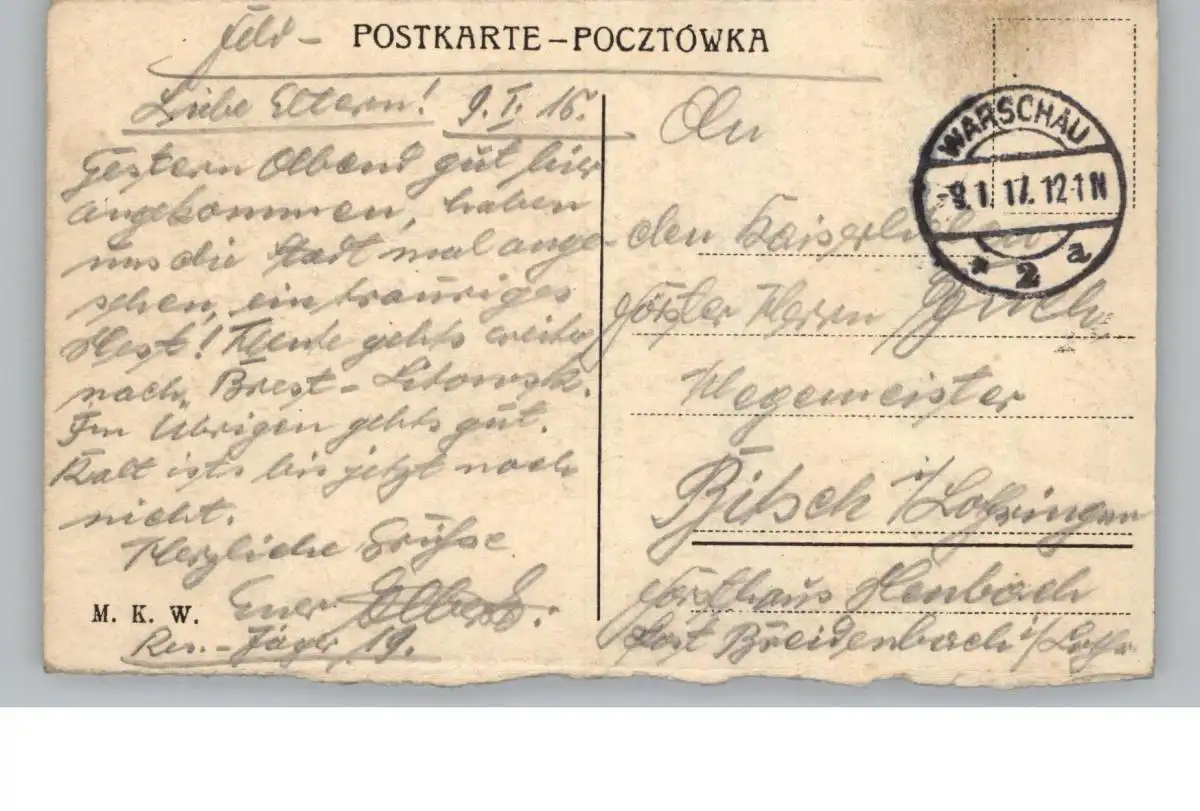 Feld-
POSTKARTE-POCZTÓWKA
Liebe Eltern! 9.I.16.
Gestern Abend gut hier
angekommen, haben
uns die Stadt mal ange-
sehen, ein trauriges
Nest! Heute gehts weiter
nach Brest-Litowsk.
Im Übrigen gehts gut.
Kalt ists bis jetzt noch
nicht.
Herzliche Grüsse
Euer Albert.
Res.-Jäger 19.
M. K. W.
WARSCHAU
-9.1.17.12-1N
* 2 a
An
den Kaiserlichen
Förster Herrn
Hegemeister
Bitsch i/Lothringen
Forsthaus
Post Breidenbach i/Lothr.